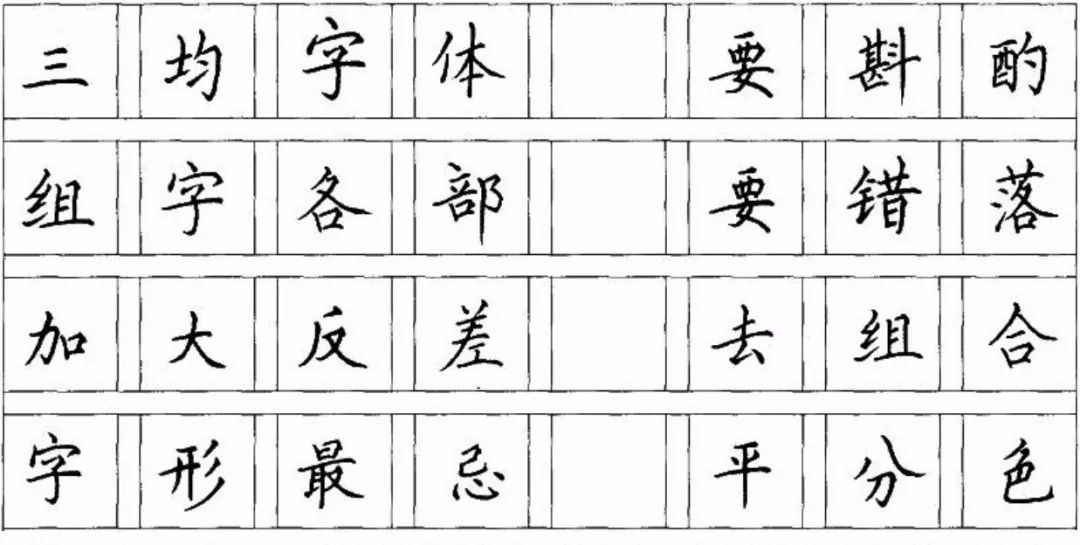 三均字体 要斟酌
组字各部 要错落
加大反差 去组合
字形最忌 平分色